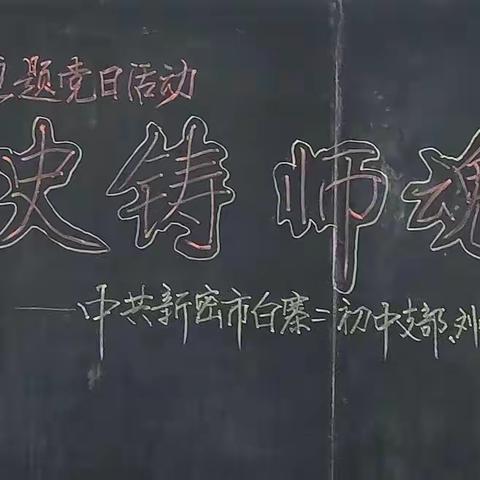 主题党日活动
史铸师魂
——中共新密市白寨二初中支部、刘